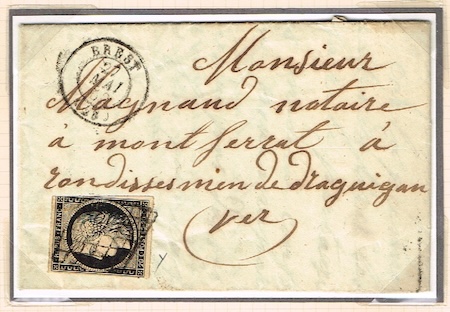 BREST
MAI
(28)
Monsieur
Magnaud notaire
à montferrat à
rondissesmen de draguigan
ver